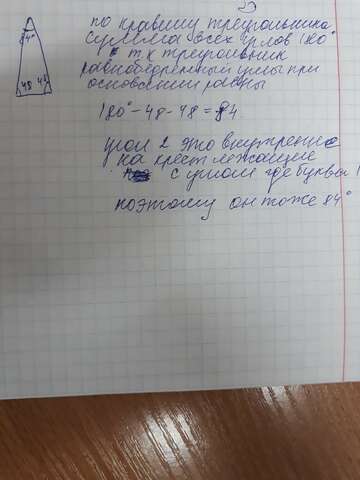 по правилу треугольника
сумма всех углов 180°
т.к треугольник
равнобедренный углы при
основании равны
84°
48 48
180° - 48 - 48 = 84
угол 2 это внутренне
на крест лежащие
с углом где буквы 1
поэтому он тоже 84°